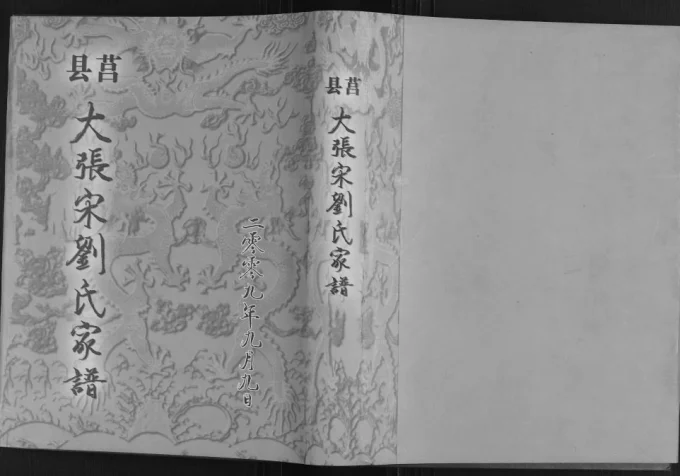 莒县
大張宋劉氏家譜
二零零九年九月九日
莒县
大張宋劉氏家譜